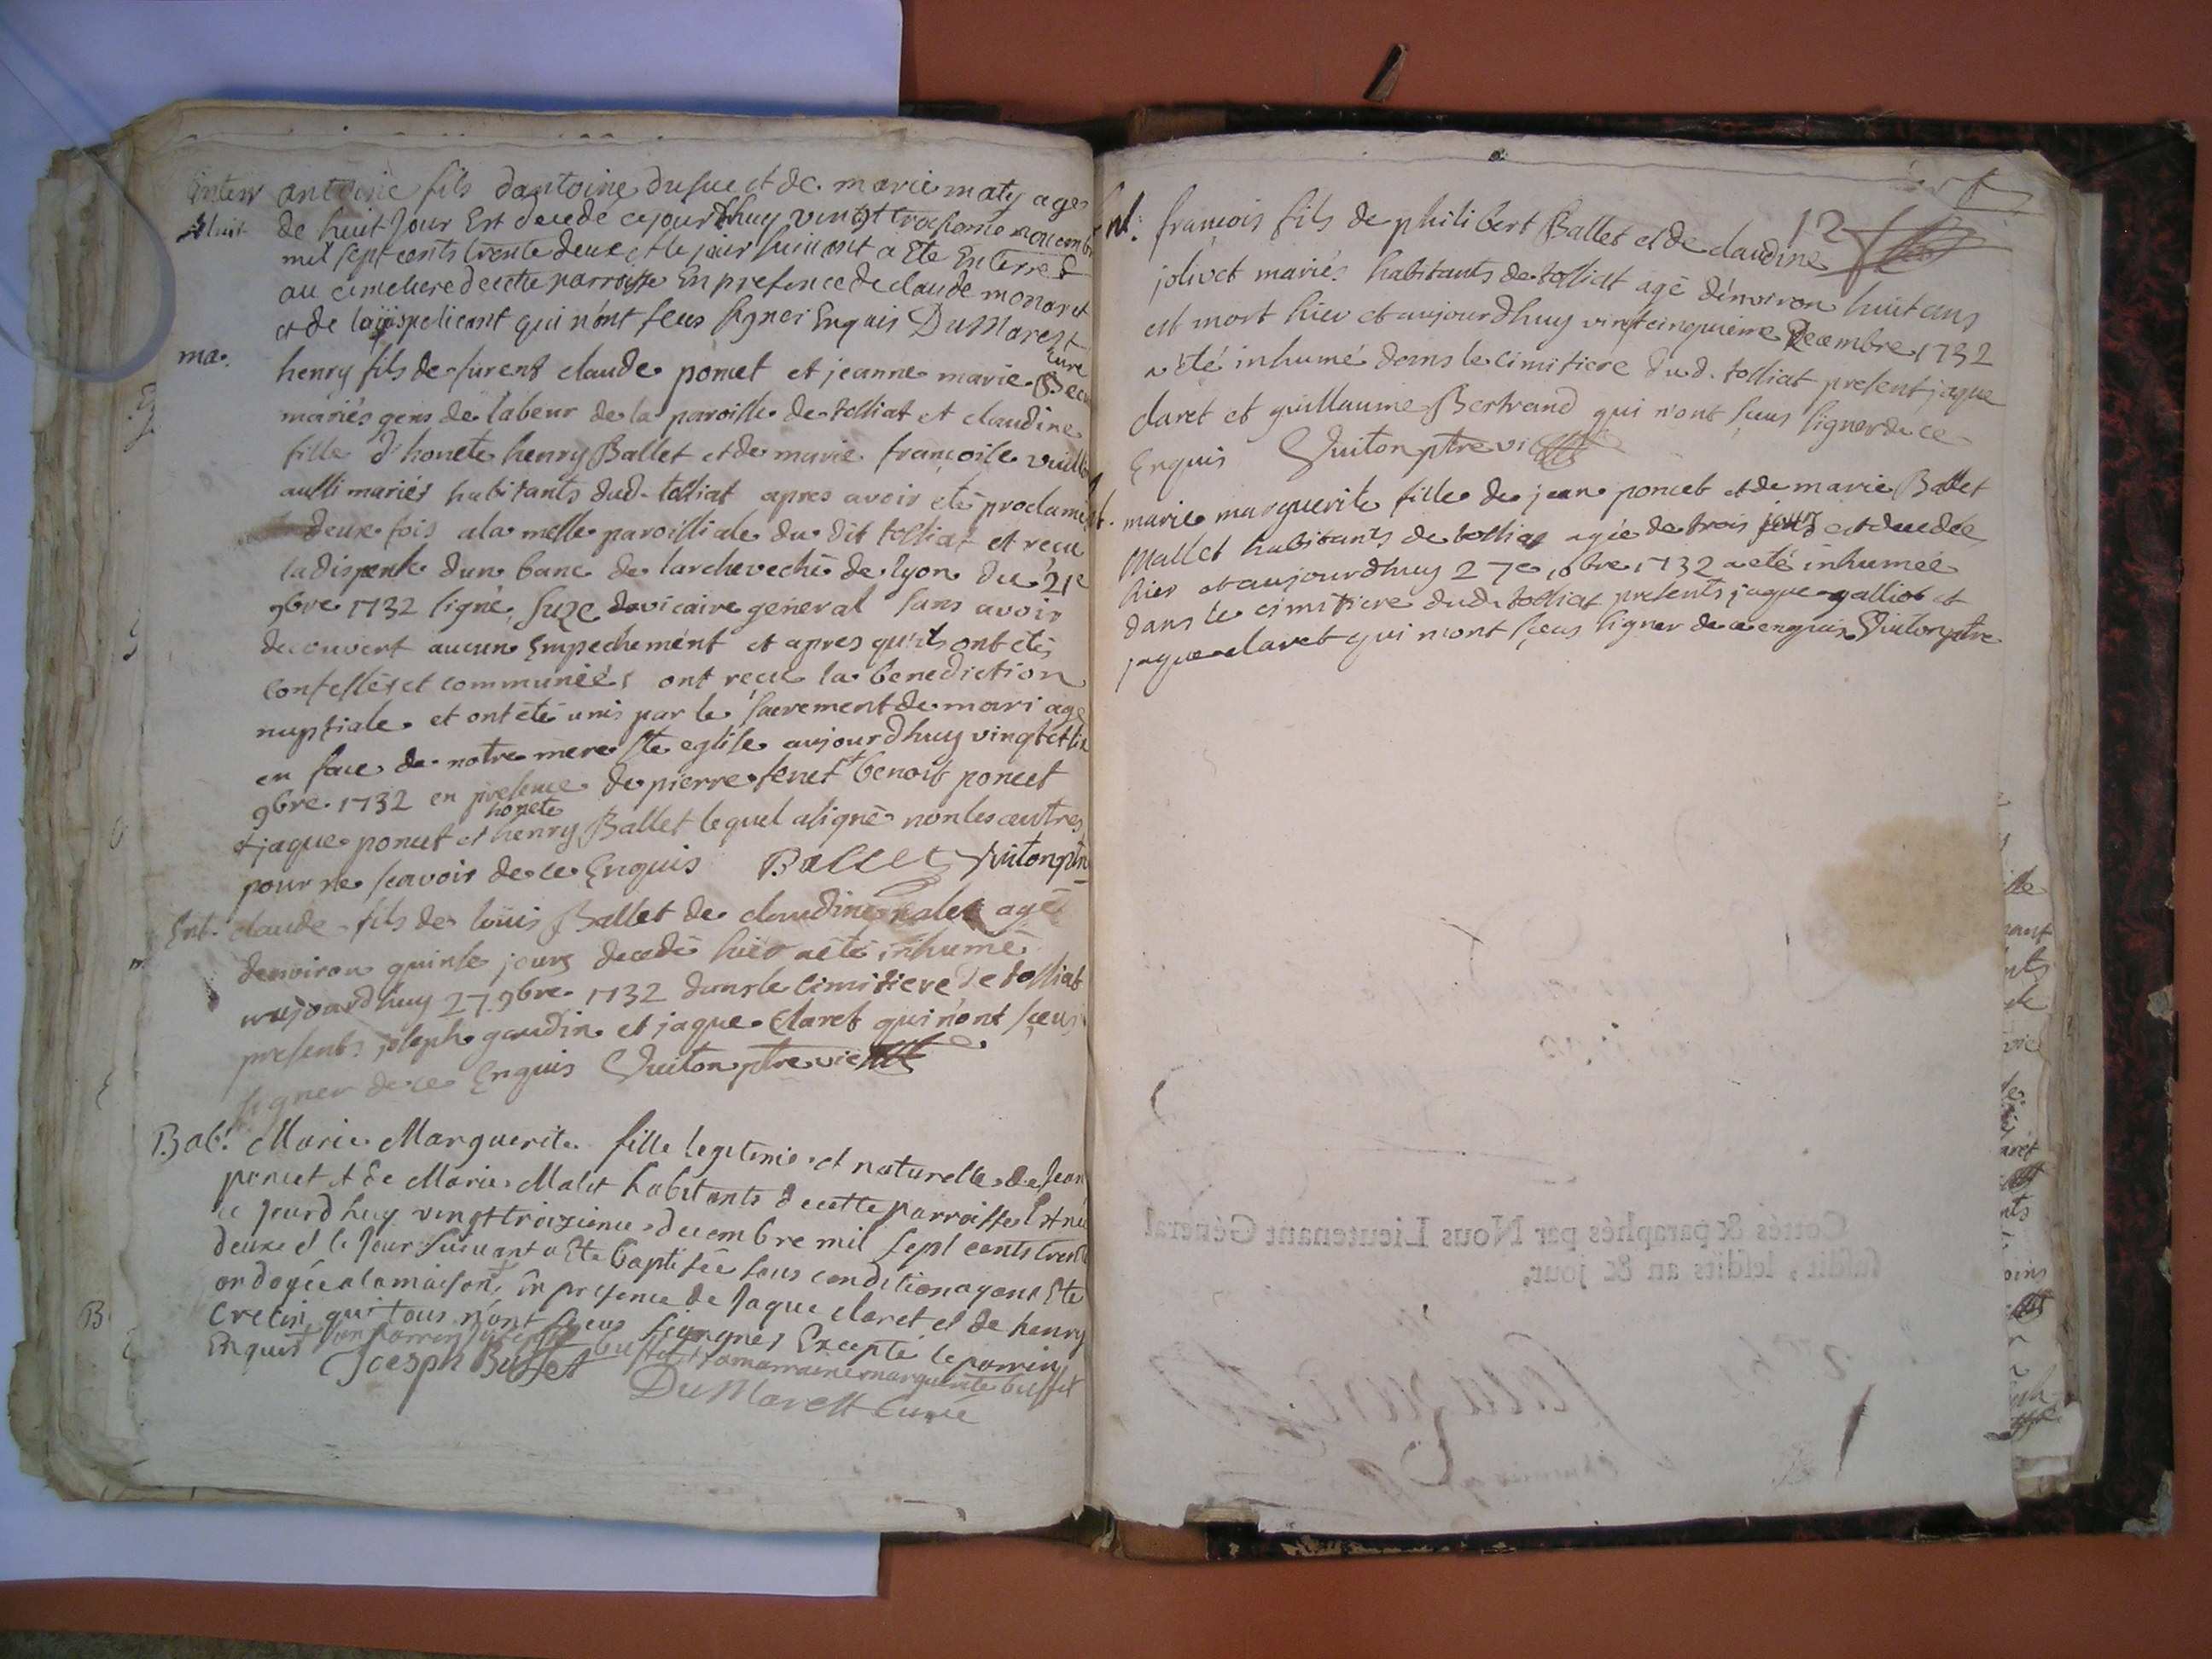 Enterr antoine fils dantoine dufue et de marie maty agés
de huit Jour Est decede cejourdhuy vingt troisieme novembre
mil sept cents trente deux et le jour suivant a Ete Enterré
au cimetiere decette parroisse En presence de claude monaret
et de loüis pelicant qui n'ont sceus signer Enquis DuMarest
Curé
ma. henry fils de furent claude poncet et jeanne marie
mariés gens de labeur de la paroisse de tossiat et claudine
fille d'honete henry Ballet et de marie françoise
aussi mariés habitants dud. tossiat apres avoir eté proclamé
deux fois a la messe paroissiale du dit tossiat et reçu
la dispense dun banc de larcheveché de lyon du 21e
9bre 1732 signé, Suze vicaire general sans avoir
decouvert aucun Empechement et apres qu'ils ont étés
confessés et communiés ont reçu la benediction
nuptiale et ont été unis par le sacrement de mariage
en face de notre mere ste eglise aujourdhuy vingt et six
9bre 1732 en presence de pierre tenet + benoit poncet
honete
et jaque poncet et henry Ballet lequel a signé non les autres
pour ne scavoir de ce Enquis BALLET Vuiton ptre
Ent. claude fils de loüis Ballet de claudine agé
denviron quinse jours decedé hier a eté inhumé
aujourdhuy 27 9bre 1732 dans le cimitiere de tossiat
presents joseph gaudin et jaque claret qui n'ont sceus
signer de ce Enquis Vuiton ptre vic
Bat. Marie Marguerite fille legitime et naturelle de Jean
poncet et de Marie Malet habitants decette parroisse Est née
ce jourdhuy vingt troizieme decembre mil sept cents trente
deux et le Jour suivant a Ete baptisée sous condition ayant Ete
ondoyée a la maison, in presence de Jaque claret et de henry
Cretin qui tous n'ont sceus signer Excepté le parrin
Enquis son parrin Joseph buffet et la marraine marguerite buffet
Joesph Buffet DuMarest Curé
12
Ent. françois fils de philibert Ballet et de claudine
jolivet mariés habitants de tossiat agé d'environ huit ans
est mort hier et aujourdhuy vingtcinquieme Decembre 1732
a été inhumé dans le cimitiere dud. tossiat present jaque
claret et guillaume Bertrand qui n'ont sceus signer de ce
Enquis Vuiton ptre vic
marie marguerite fille de jean poncet et de marie Ballet
Mallet habitants de tossiat agée de trois jours est decedée
hier et aujourdhuy 27e 10bre 1732 a eté inhumée
dans le cimitiere dud. tossiat presents jaque galliot et
jaque claret qui n'ont sceus signer de ce enquis Vuiton ptre
Cottés & paraphés par Nous Lieutenant Général
susdit, lesdits an & jour,